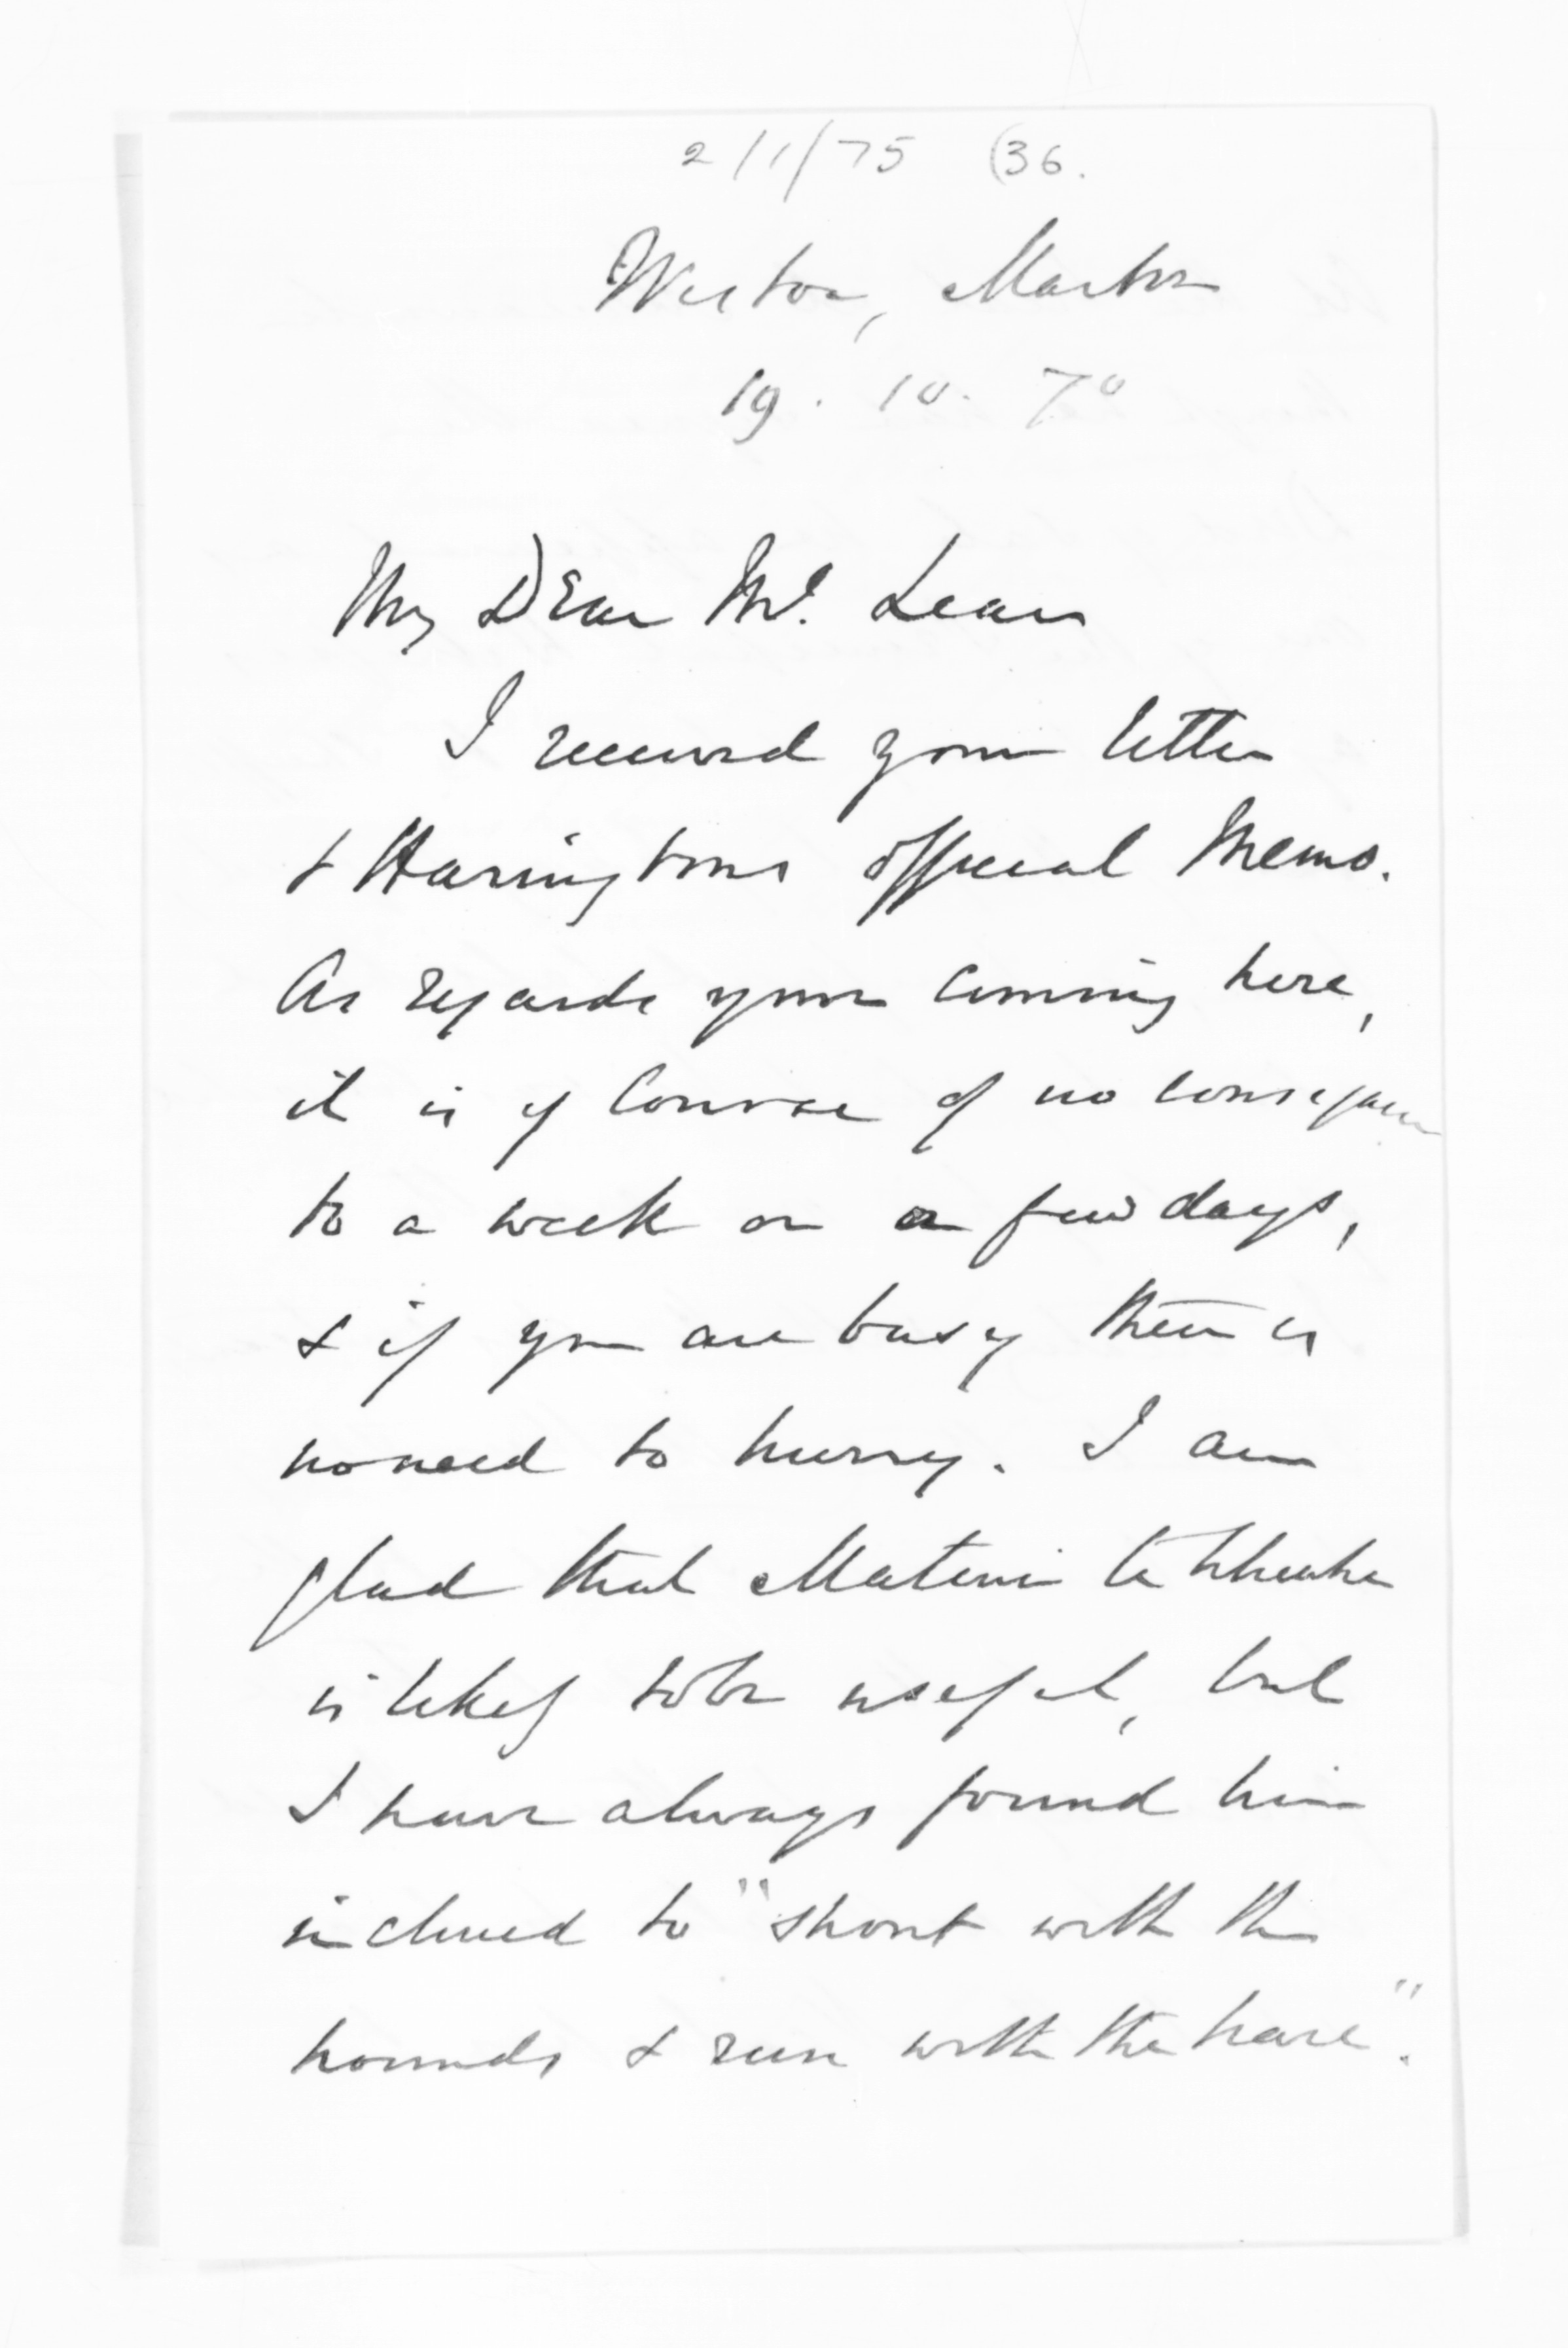 2/1/75 (36.
Weston, Marton
19. 10. 70
My Dear McLean
I received your letter
& Haringtons official Memo.
As regards your coming here,
it is of course of no consequence
to a week or a few days,
& if you are busy there is
no need to hurry. I am
glad that Matene te Whiwhi
is likely to be useful, but
I have always found him
inclined to "shout with the
hounds & run with the hare".